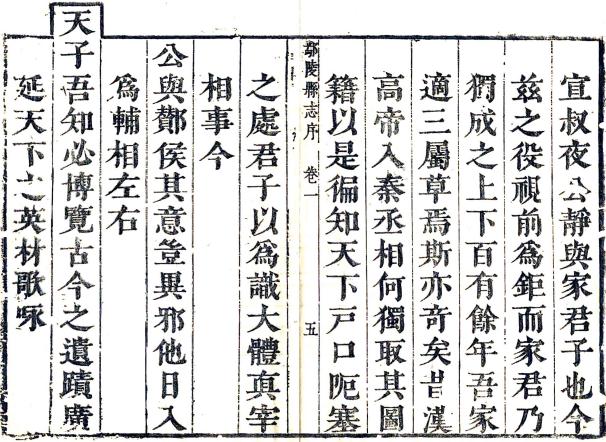 宣叔夜公靜與家君子也今
玆之役視前爲鉅而家君乃
獨成之上下百有餘年吾家
適三屬草焉斯亦奇矣昔漢
高帝入秦丞相何獨取其圖
籍以是徧知天下戸口阨塞
鄢陵縣志序 卷一 五
之處君子以爲識大體真宰
相事今
公與酇侯其意豈異邪他日入
爲輔相左右
天子吾知必博覽古今之遺蹟廣
延天下之英材歌咏